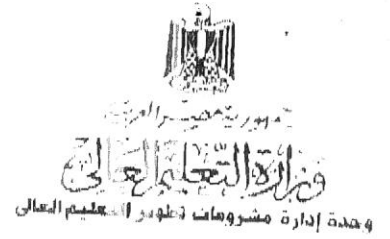 جمهورية مصر العربية
وزارة التعليم العالي
وحدة إدارة مشروعات تطوير التعليم العالى